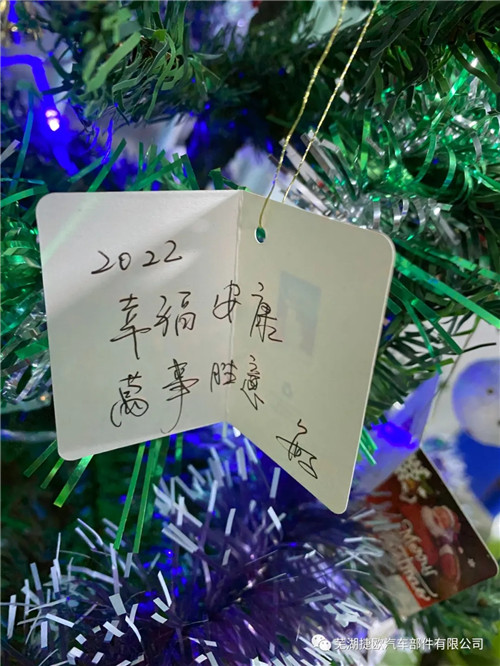 2022
幸福安康
萬事胜意
Merry
Christmas
芜湖捷欧汽车部件有限公司